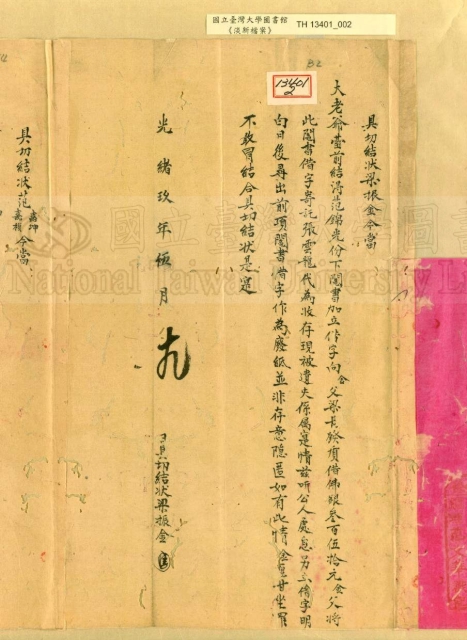 國立臺灣大學圖書館
《淡新檔案》
TH 13401_002
13401
2
具切結狀梁振金今當
大老爺臺前結得范錦光份下鬮書加立借字向金父梁長脉領借佛銀叁百伍拾元金父將
此鬮書借字寄託張雲龍代為收存現被遺失係属寔情茲听公人處息另立借字明
白日後尋出前項鬮書借字作為廢紙並非存意隐匿如有此情金愿甘坐罪
不敢冒結合具切結狀是寔
光緒玖年伍月
九
日具切結狀梁振金
具切結狀范嘉坤
今當
國立臺灣大學圖
National Taiwan University Li